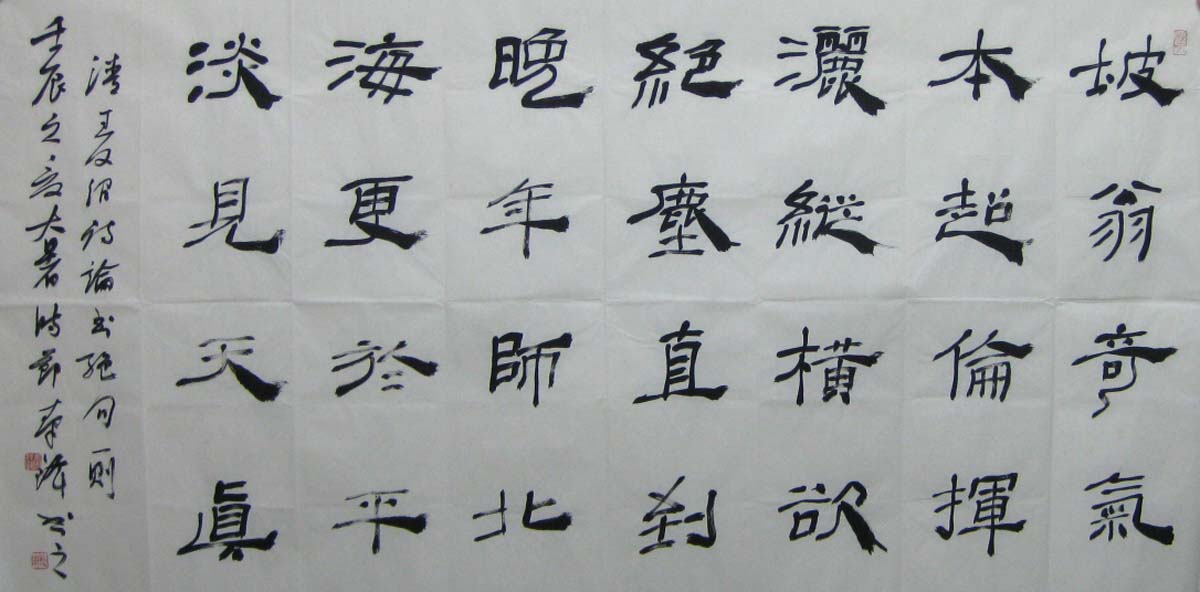 坡翁奇氣
本超倫揮
灑縱橫欲
絶塵直到
晚年師北
海更於平
淡見天眞
清王文治詩論書絶句一則
壬辰之夏大暑時節書之